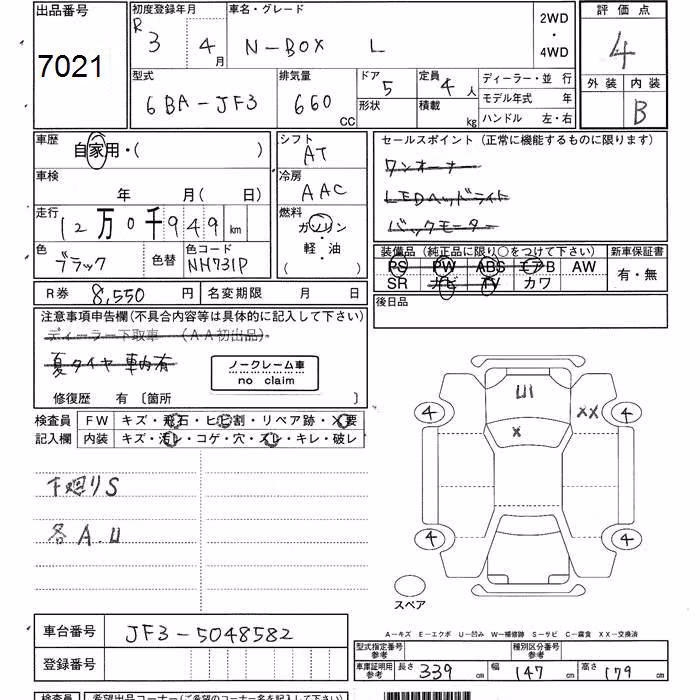 出品番号
7021
初度登録年月
R 3 4月
車名・グレード
N-BOX L
2WD
・
4WD
評価点
4
外装 内装
B
型式
6BA-JF3
排気量
660 CC
ドア 5
形状
定員 4人
積載 kg
ディーラー・並 行
モデル年式 年
ハンドル 左・右
車歴
自家用・( )
車検
年 月(日)
走行
12万0千949 km
色
ブラック
色替
色コード
NH731P
シフト
AT
冷房
AAC
燃料
ガソリン
軽・油
( )
セールスポイント(正常に機能するものに限ります)
ワンオーナー
LEDヘッドライト
バックモーター
装備品(純正品に限り○をつけて下さい)
PS PW ABS エアB AW
SR ナビ TV カワ
新車保証書
有・無
R券 8,550 円
名変期限 月 日
後日品
注意事項申告欄(不具合内容等は具体的に記入して下さい)
ディーラー下取車 (AA初出品)
夏タイヤ 車内有
ノークレーム車
no claim
修復歴 有〔箇所 〕
検査員
記入欄
FW キズ・飛石・ヒビ割・リペア跡・X要
内装 キズ・汚レ・コゲ・穴・スレ・キレ・破レ
下廻りS
各A.U
UI
XX
X
4
4
4
4
スペア
車台番号 JF3-5048582
登録番号
A-キズ E-エクボ U-凹み W-補修跡 S-サビ C-腐食 XX-交換済
型式指定番号
参考
種別区分番号
参考
車庫証明用
参考
長さ 339 cm
幅 147 cm
高さ 179 cm
検査員 希望出品コーナー(ご希望のコーナー名を記入して下さい)